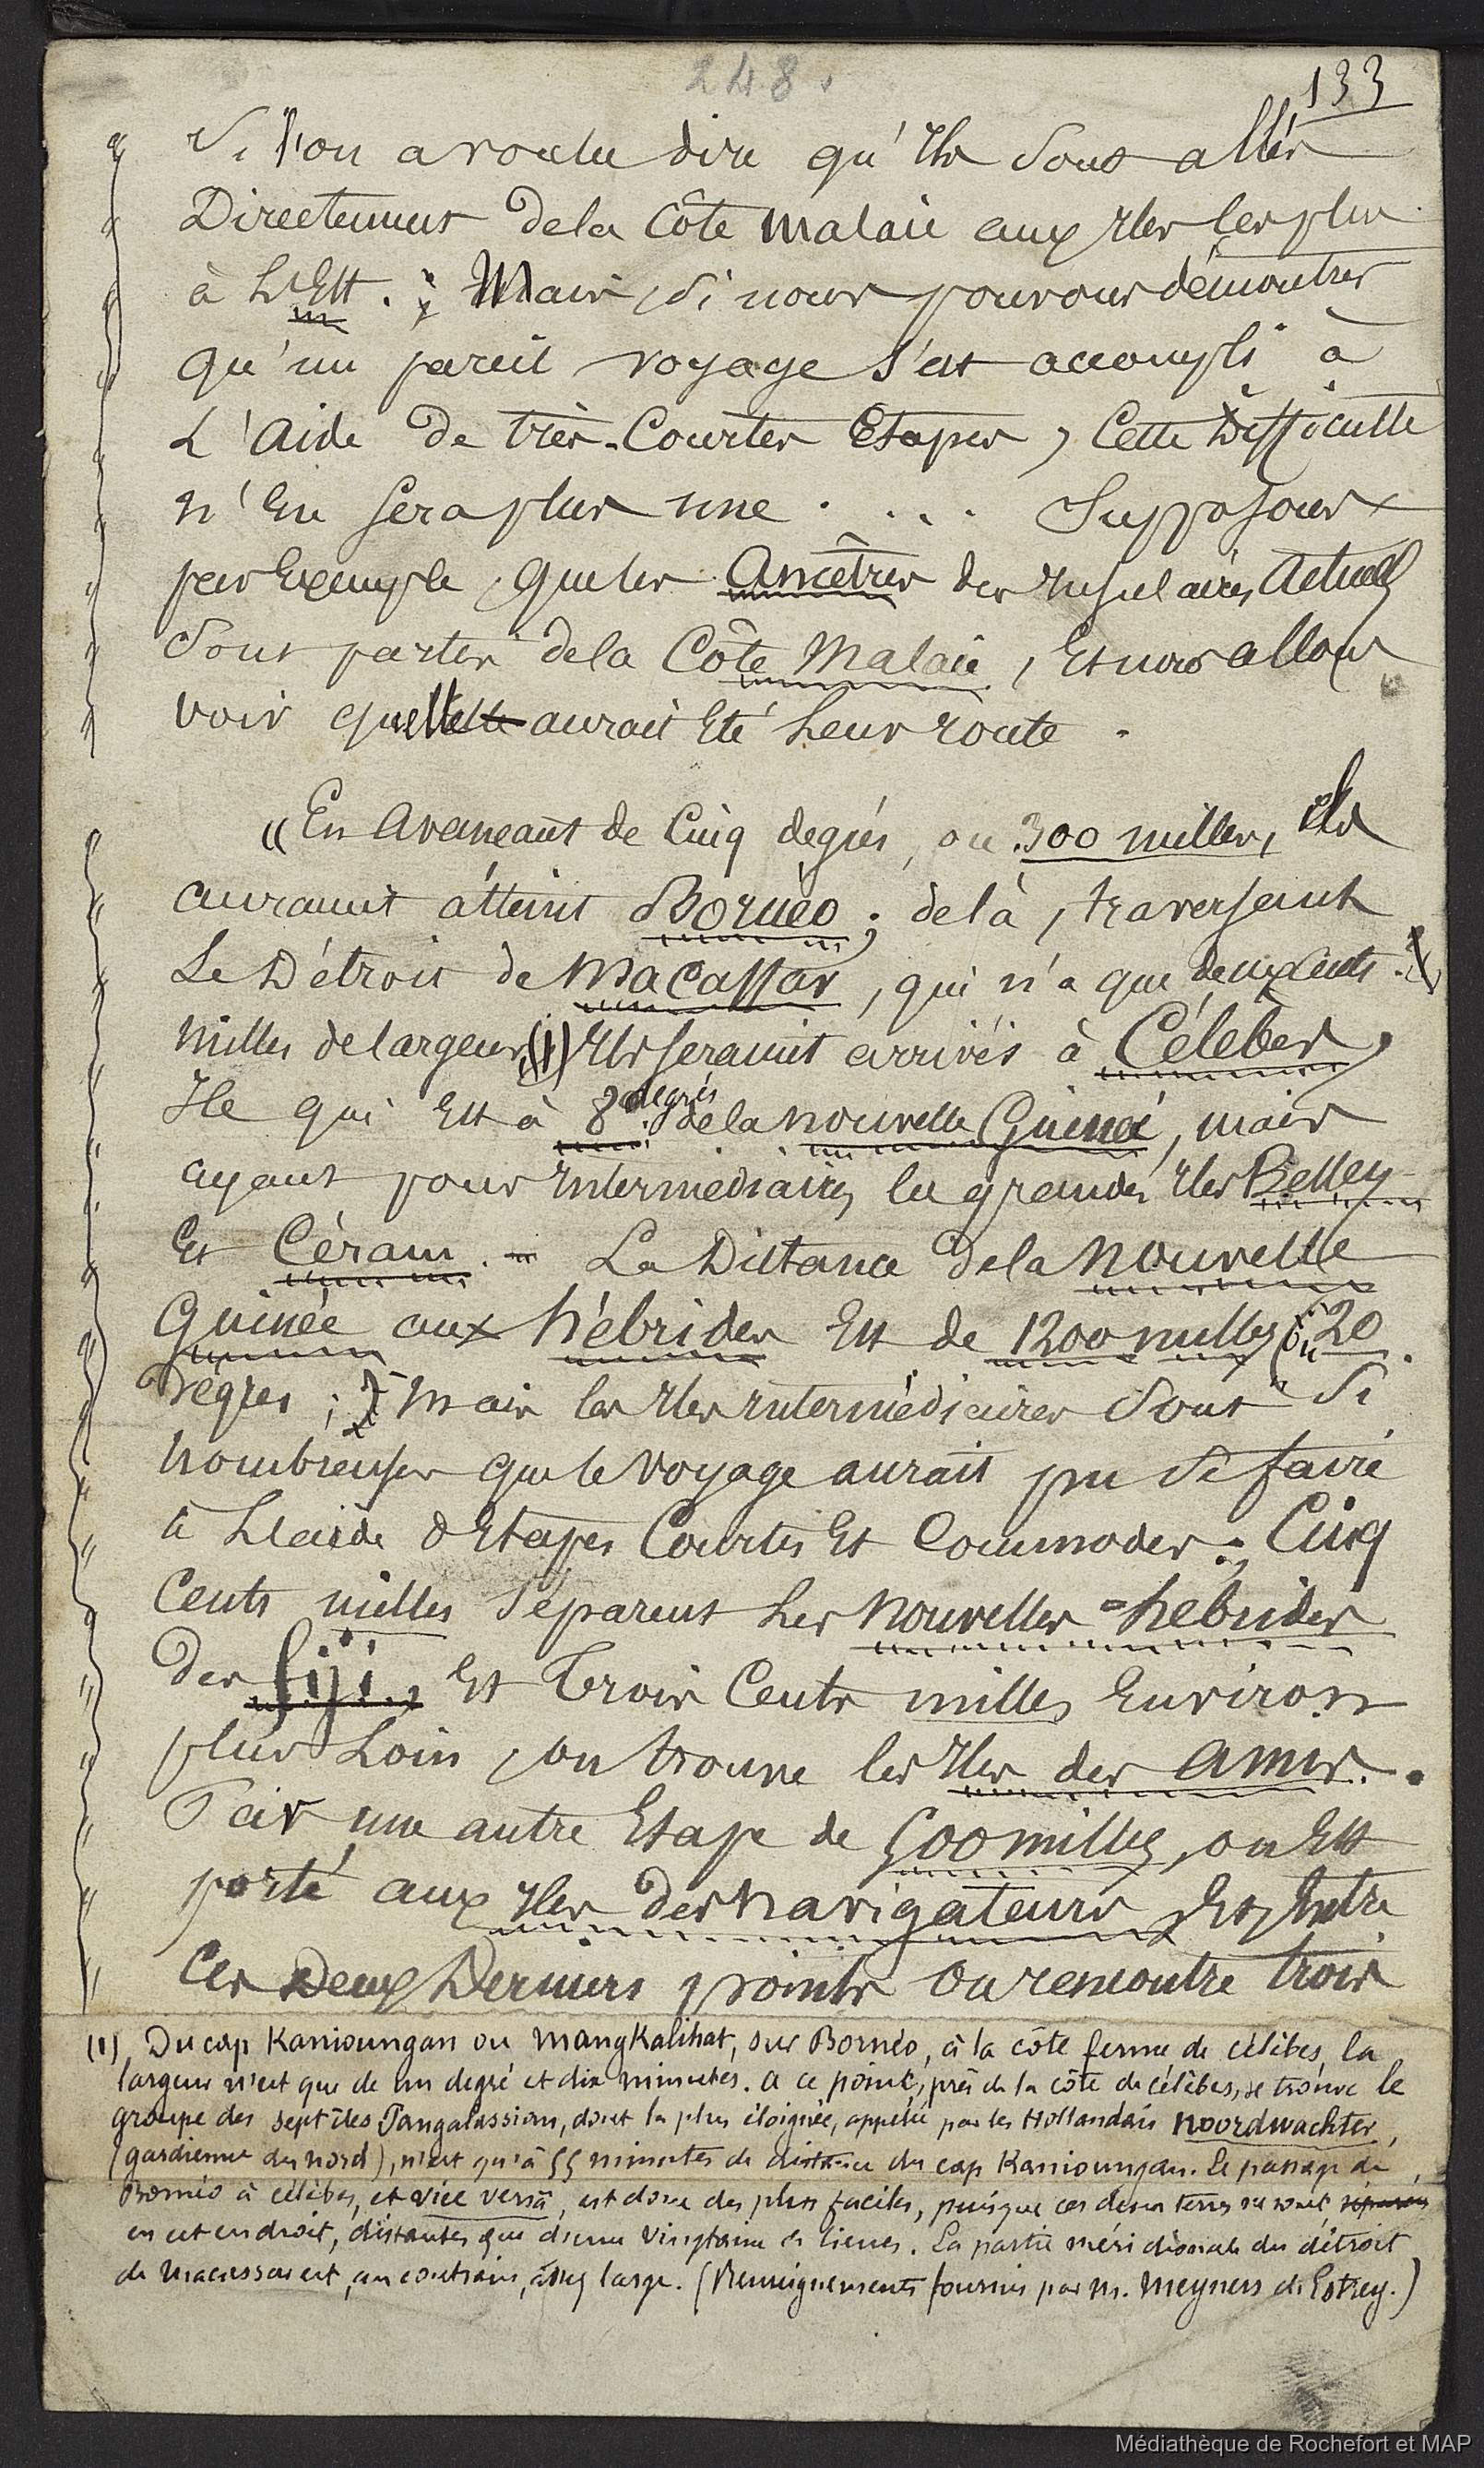 248.
133
Si l'on a voulu dire qu'Ils sont allés
Directement de la Côte malaie aux Iles les plus
à L'Est. ; Mais, si nous pouvons démontrer
qu'un pareil voyage s'est accompli à
L'aide de très-Courtes Etapes, Cette Difficulté
n'en sera plus une . ... Supposons
par Exemple, que les Ancêtres des Insulaires Actuels
sont partis de la Côte Malaie, Et nous allons
voir quelle aurait Eté Leur route.
« En avançant de Cinq degrés, ou 300 milles, ils
auraient atteint Bornéo ; de là, traversant
Le Détroit de Macassar, qui n'a que deux cents
milles de largeur, (1) Ils seraient arrivés à Célèbes,
Ile qui Est à 8 degrés de la nouvelle Guinée, mais
ayant pour Intermédiaires les grandes Iles Belley
Et Céram. = La Distance de la nouvelle
Guinée aux hébrides Est de 1200 milles (ou 20
degrés ;) mais les Iles Intermédiaires sont si
nombreuses que le voyage aurait pu se faire
à L'aide d'Etapes Courtes Et Commodes. ; Cinq
Cents milles séparent Les nouvelles=hébrides
des fiji, Et Trois Cents milles Environ
plus Loin, on trouve les Iles des amis.
Par une autre Etape de 500 milles, on Est
porté aux Iles des navigateurs, Et, Entre
Ces Deux Derniers points On rencontre trois
(1) Du cap Kanioungan ou Mangkalihat, sur Bornéo, à la côte ferme de célèbes, la
largeur n'est que de un degré et dix minutes. a ce point, près de la côte de célèbes, se trouve le
groupe des sept îles Pangalassian, dont la plus éloignée, appelée par les Hollandais noordwachter,
(gardienne du nord), n'est qu'à 55 minutes de distance du cap Kanioungan. Le passage de
Bornéo à célèbes, et vice versâ, est donc des plus faciles, puisque ces deux terres ne sont, séparées
en cet endroit, distantes que d'une vingtaine de lieues. La partie méridionale du détroit
de Macassar est, au contraire, assez large. (Renseignements fournis par M. Meyners d'Estrey.)
Médiathèque de Rochefort et MAP